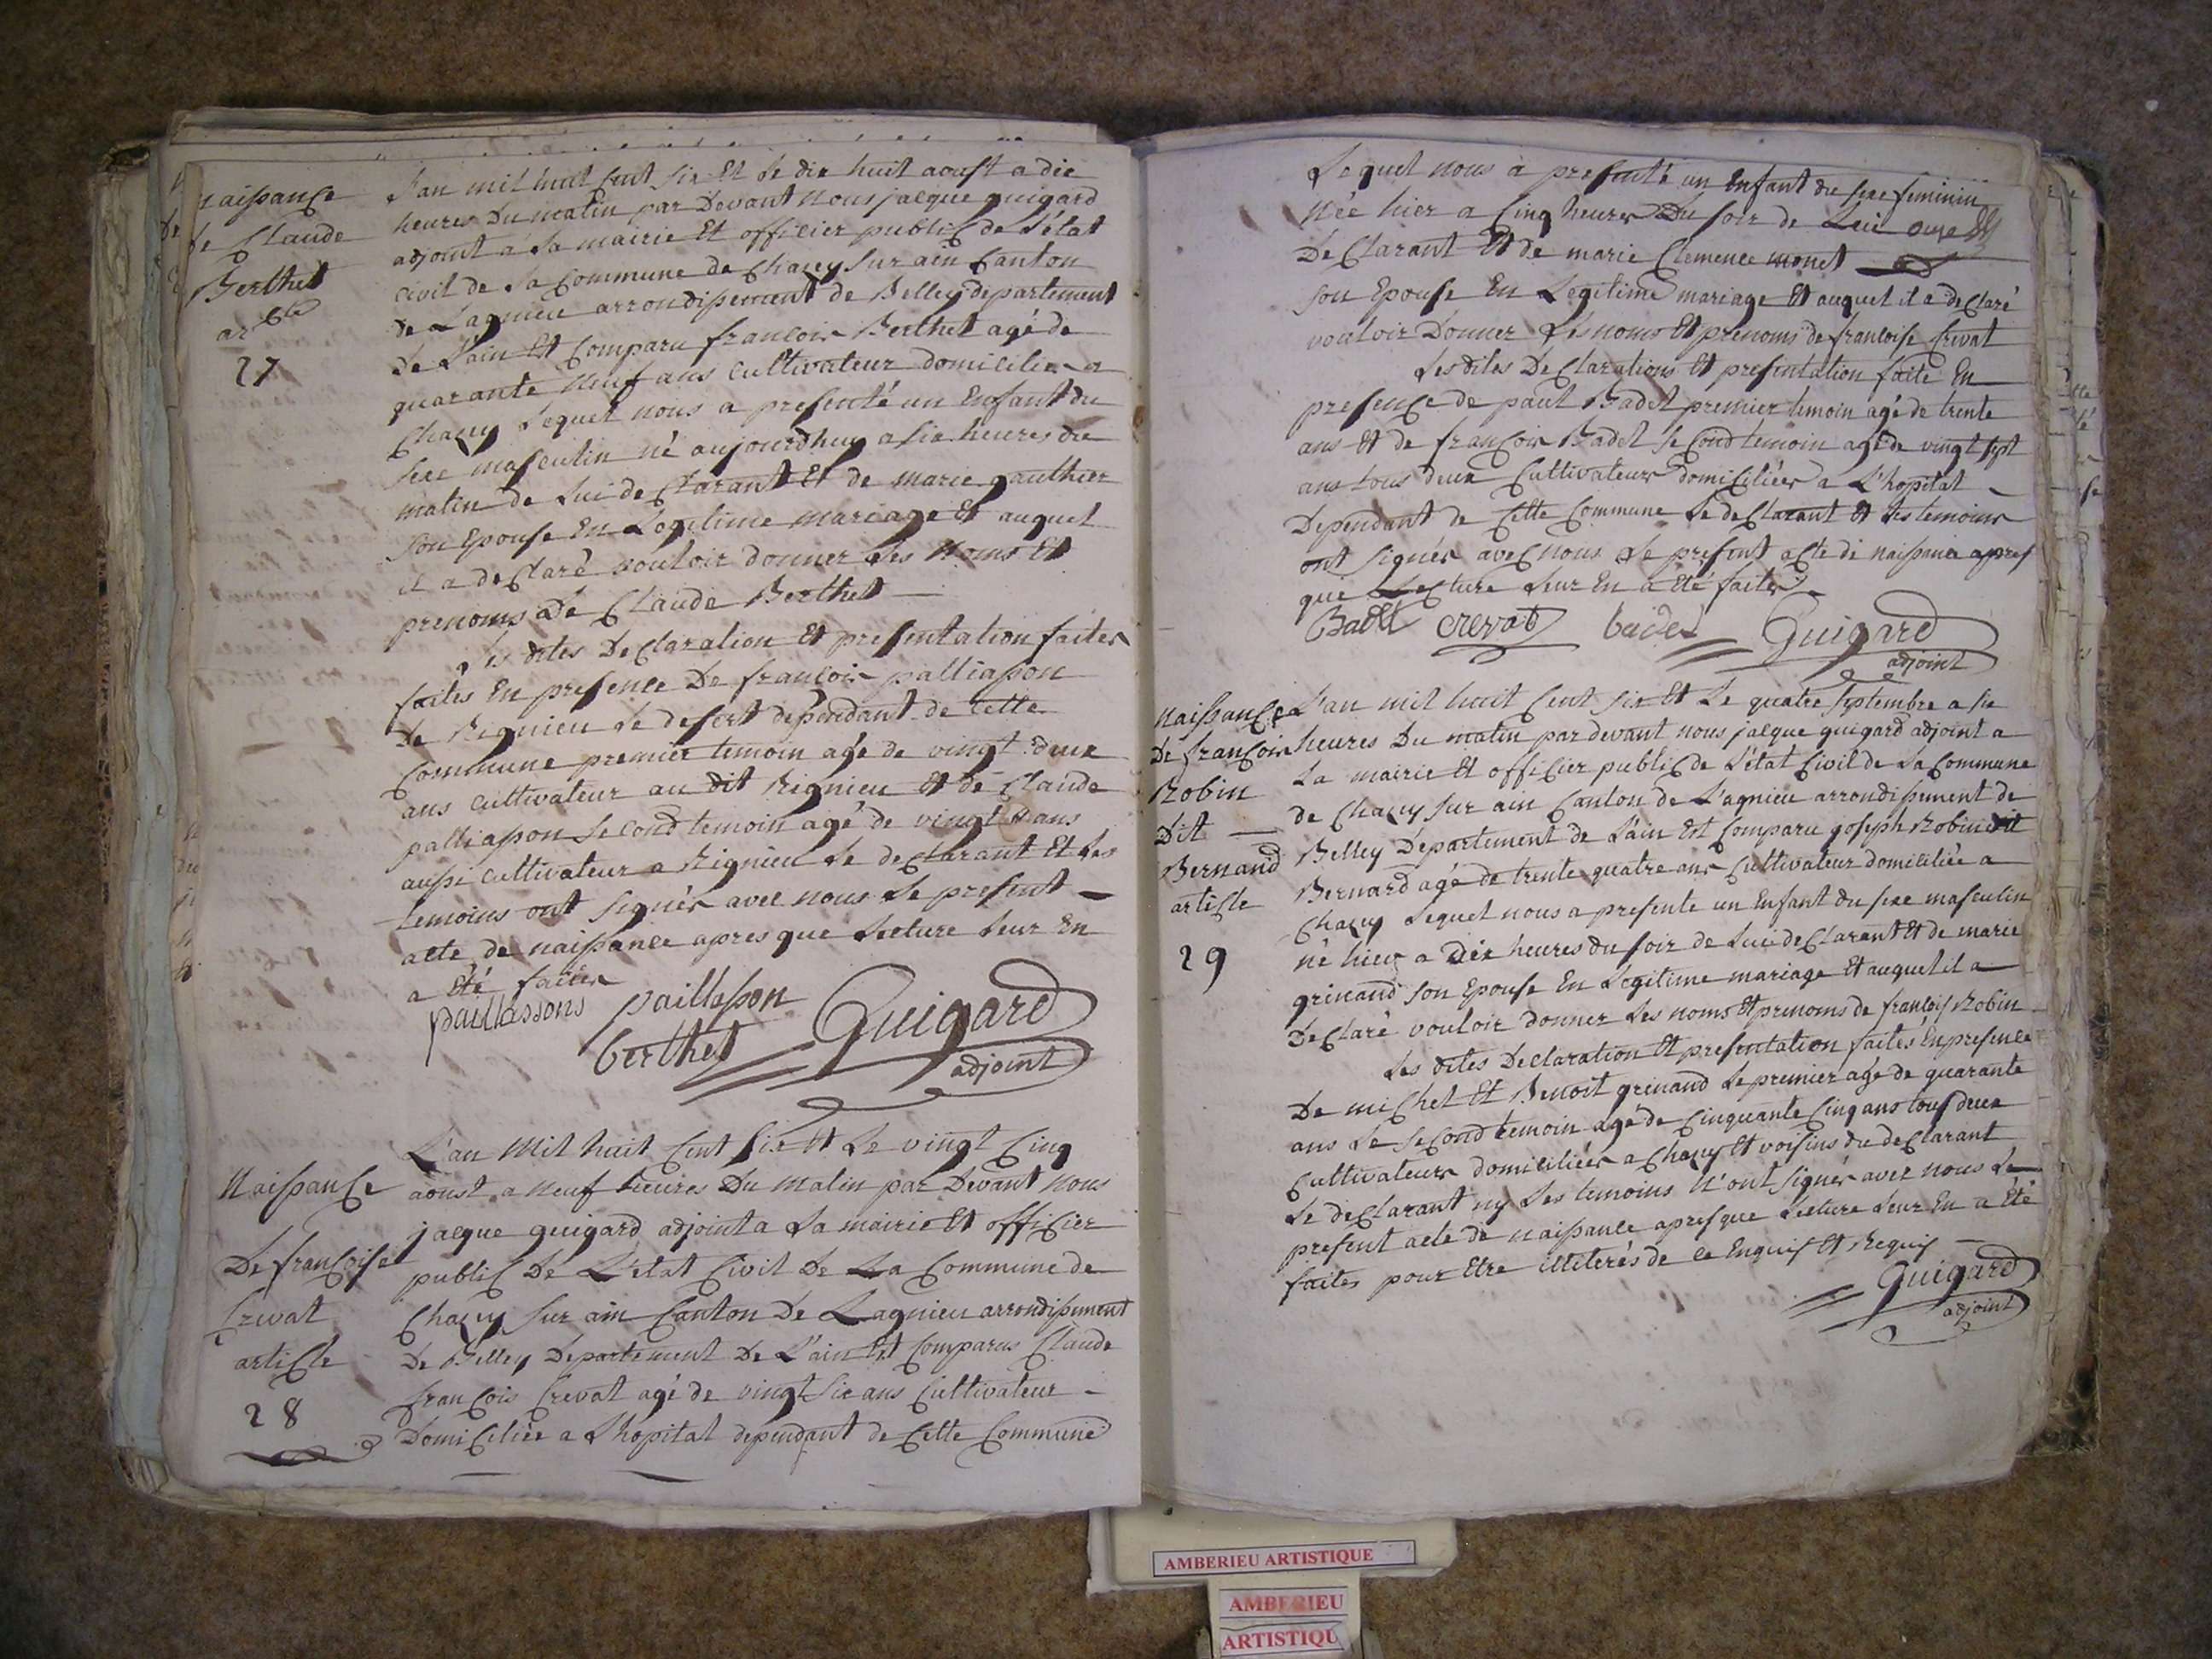 naissance
de Claude
Berthet
arcle
27
L'an mil huit Cent six Et le dix huit aoust a dix
heures Du matin par Devant Nous jacque guigard
adjoint a la mairie Et officier public de L'état
civil de la Commune de Chazey sur ain Canton
de Lagnieu arrondissement de Belley departement
de L'ain Est Comparu francois Berthet agé de
quarante neuf ans cultivateur domicilier a
Chazey Lequel nous a presenté un Enfant du
sexe masculin né aujourdhuy a six heures du
matin de lui declarant Et de marie gauthier
son Epouse En Legitime mariage Et auquel
il a declaré vouloir donner les Noms Et
prenoms De Claude Berthet
Les dites Declaration Et presentation faites
faites En presence De francois palliasson
De Rignieu le desert dependant de cette
Commune premier temoin agé de vingt deux
ans cultivateur au dit Rignieu Et de Claude
palliasson second temoin agé de vingt ans
aussi cultivateur a Rignieu le declarant Et les
temoins ont signés avec nous le present
acte de naissance apres que lecture leur En
a été faites
paillassons paillasson
berthet Guigard
adjoint
Naissance
De francoise
Crevat
article
28
L'an Mil huit Cent six Et Le vingt Cinq
aoust a neuf heures Du matin par Devant Nous
jacque guigard adjoint a la mairie Et officier
public De L'etat Civil De La Commune de
Chazey sur ain Canton De Lagnieu arrondissement
De Belley Departement De L'ain Est Comparus Claude
francois Crevat agé de vingt six ans Cultivateur
Domiciliée a L'hopital dependant de Cette Commune
Lequel nous à presenté un Enfant du sexe feminin
Née hier a Cinq heures Du soir de Lui
DeClarant Et de marie Clemence monet
son Epouse En Legitime mariage Et auquel il a declaré
vouloir Donner Les noms Et prenoms de francoise Crevat
Les dites DeClarations Et presentation faite En
presence de paul Badet premier temoin agé de trente
ans Et de francois Badet second temoin agé de vingt sept
ans tous deux Cultivateurs domiciliées a L'hopital
Dependant de Cette Commune Le declarant Et les temoins
ont signés avec nous Le present acte de naissance apres
que Lecture leur En a été faites
Badet crevat badet Guigard
adjoint
Naissance
De francois
Robin
Dit
Bernand
article
29
L'an mil huit Cent six Et Le quatre septembre a six
heures Du matin par devant nous jacque guigard adjoint a
La mairie Et officier public de L'état Civil de La Commune
de Chazey sur ain Canton de L'agnieu arrondissement de
Belley Departement de L'ain Est Comparu joseph Robin dit
Bernard agé de trente quatre ans Cultivateur domiciliée a
Chazey Lequel nous a presente un Enfant du sexe masculin
né hier a dix heures du soir de Lui deClarant Et de marie
grinand son Epouse En Legitime mariage Et auquel il a
DeClaré vouloir donner les noms Et prenoms de françois Robin
Les dites Declaration Et presentation faites En presence
De michel Et Benoit grinand Le premier agé de quarante
ans Le second temoin agé de Cinquante Cinq ans tous deux
Cultivateurs domiciliées a Chazey Et voisins du declarant
Le declarant ny les temoins N'ont signés avec nous Le
present acte de naissance apres que Lecture leur En a Eté
faites pour Etre illiterés de ce Enquis Et Requis
Guigard
adjoint
AMBERIEU ARTISTIQUE
AMBERIEU
ARTISTIQU